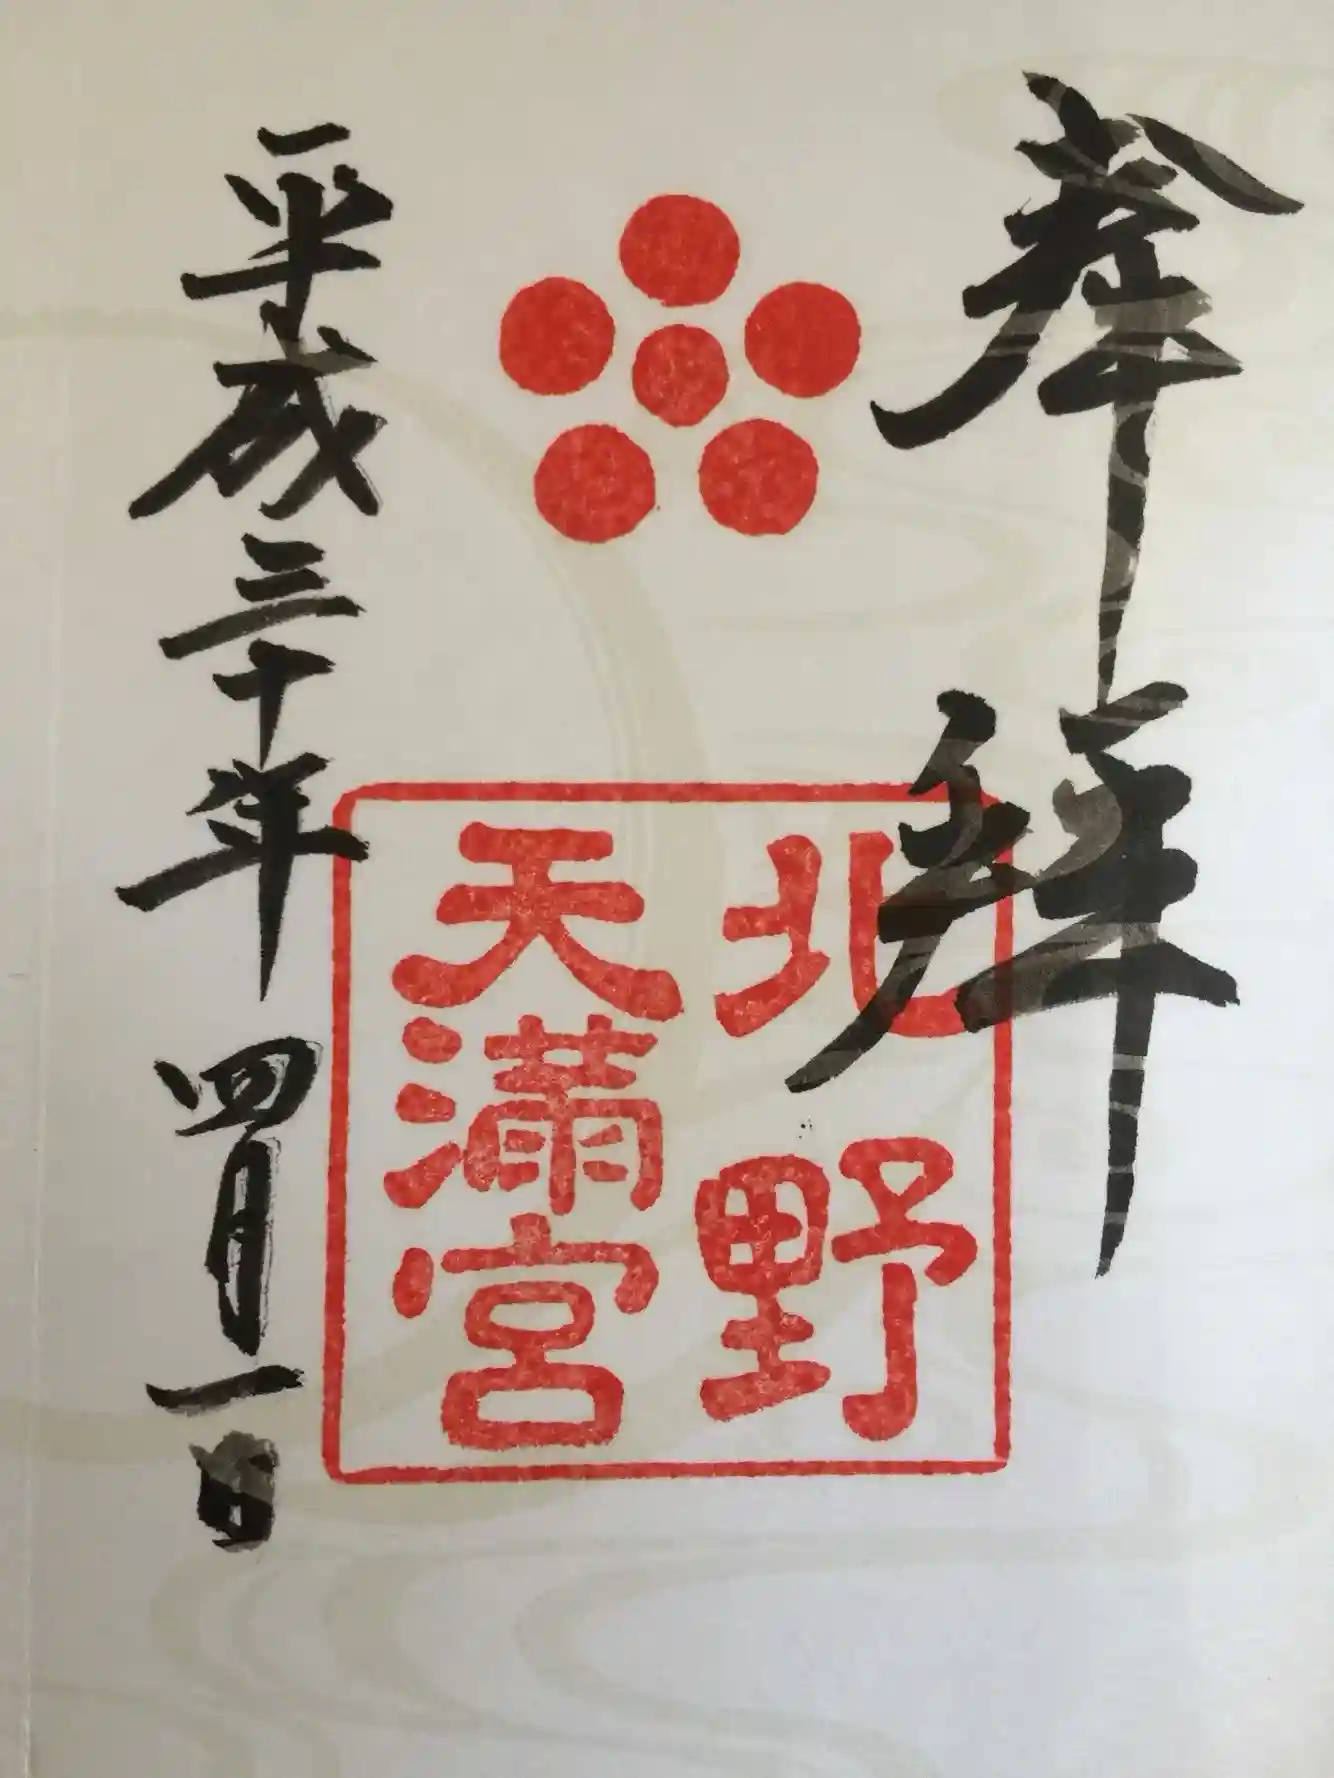 奉拝
北野
天満宮
平成三十年 四月一日